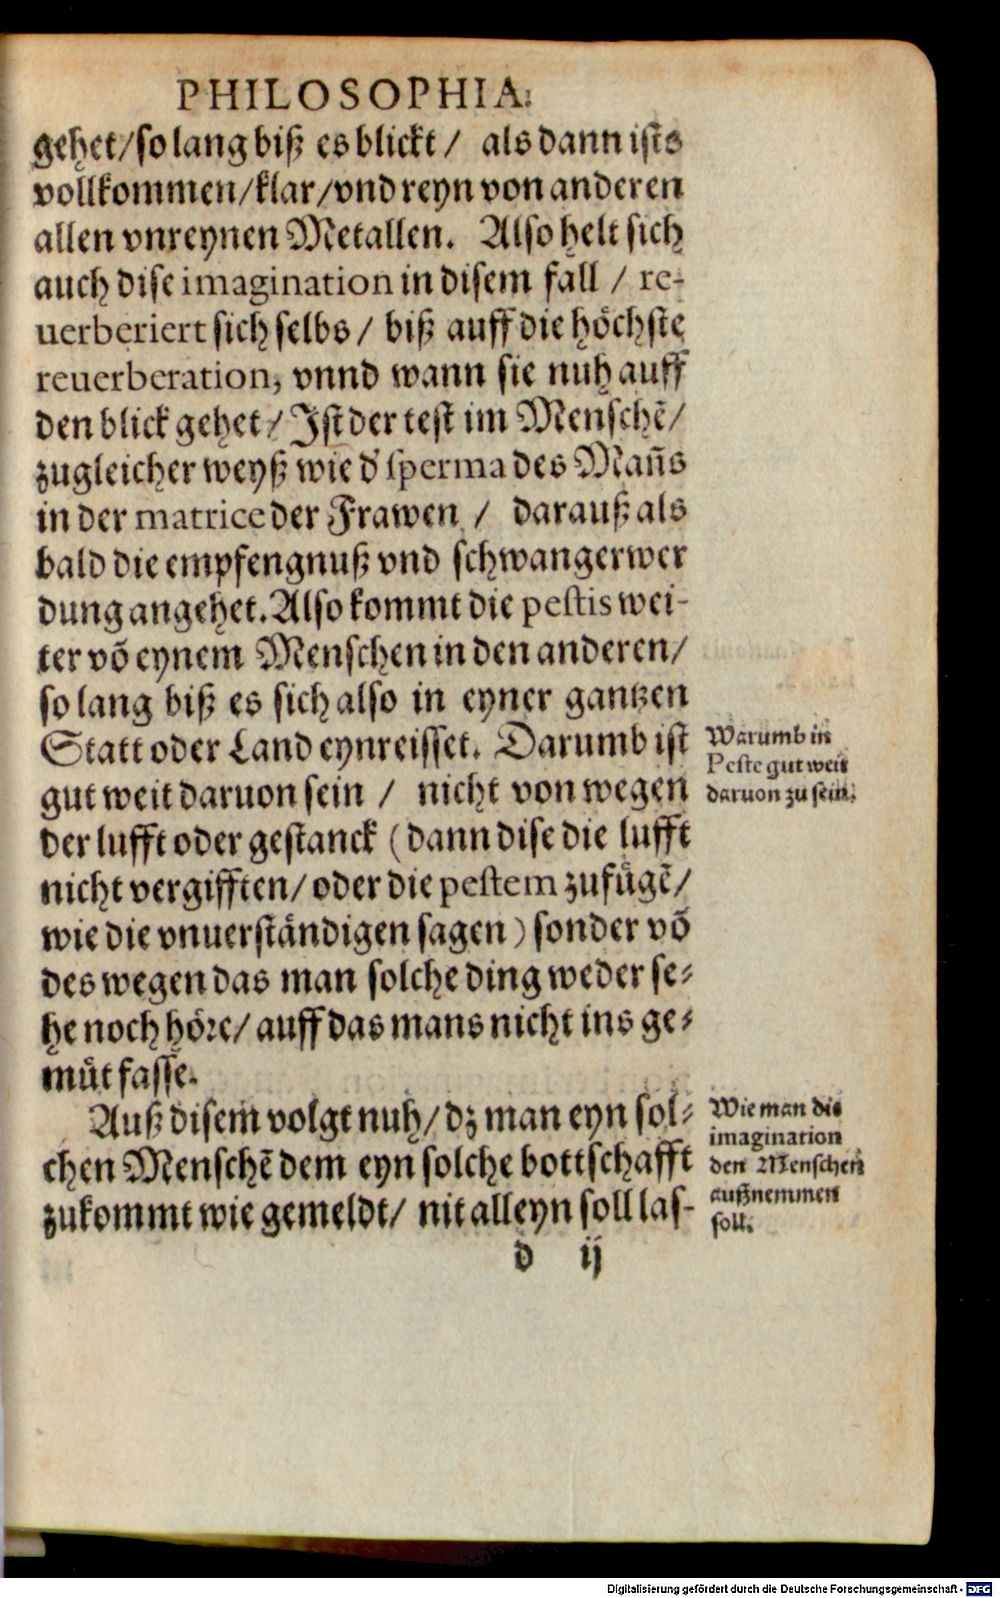 PHILOSOPHIA.
gehet/so lang biß es blickt/ als dann ists
vollkommen/klar/vnd reyn von anderen
allen vnreynen Metallen. Also helt sich
auch dise imagination in disem fall / re-
uerberiert sich selbs/ biß auff die höchste
reuerberation, vnnd wann sie nuh auff
den blick gehet/ Ist der test im Menschẽ/
zugleicher weyß wie d' sperma des Mañs
in der matrice der Frawen / darauß als
bald die empfengnuß vnd schwangerwer
dung angehet. Also kommt die pestis wei-
ter võ eynem Menschen in den anderen/
so lang biß es sich also in eyner gantzen
Statt oder Land eynreisset. Darumb ist
gut weit daruon sein / nicht von wegen
der lufft oder gestanck (dann dise die lufft
nicht vergifften/ oder die pestem zufůgẽ/
wie die vnuerständigen sagen) sonder võ
des wegen das man solche ding weder se-
he noch höre/ auff das mans nicht ins ge-
můt fasse.
Auß disem volgt nuh/ dz man eyn sol-
chen Menschẽ dem eyn solche bottschafft
zukommt wie gemeldt/ nit alleyn soll las-
d ij
Warumb in
Peste gut weit
daruon zu sein.
Wie man die
imagination
den Menschen
außnemmen
soll.
Digitalisierung gefördert durch die Deutsche Forschungsgemeinschaft - DFG